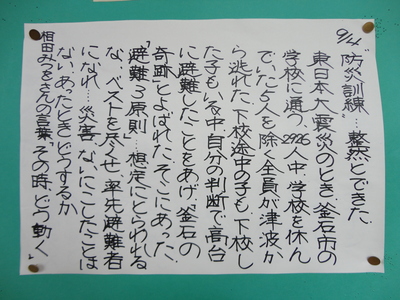 9/4 "防災訓練…整然とできた、
東日本大震災のとき、釜石市の
学校に通う、2926人中、学校を休ん
でいた5人を除く全員が津波か
ら逃れた、下校途中の子も、下校し
た子もいる中、自分の判断で高台
に避難したことをあげ、"釜石の
奇跡"とよばれた、そこにあった、
"避難3原則"…想定にとらわれる
な、ベストを尽くせ、率先避難者
になれ…災害、ないにこしたことは
ない、あったとき、どうするか
相田みつをさんの言葉"その時、どう動く"